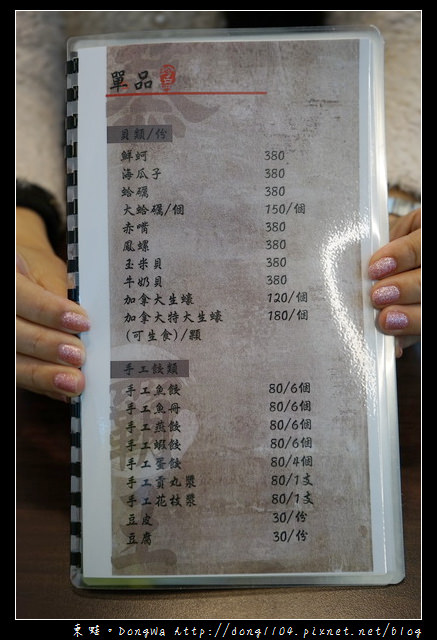 單品
貝類/份
鮮蚵 380
海瓜子 380
蛤礪 380
大蛤礪/個 150/個
赤嘴 380
鳳螺 380
玉米貝 380
牛奶貝 380
加拿大生蠔 120/個
加拿大特大生蠔 180/個
(可生食)/顆
手工餃類
手工魚餃 80/6個
手工魚冊 80/6個
手工燕餃 80/6個
手工蝦餃 80/6個
手工蛋餃 80/4個
手工貢丸漿 80/1支
手工花枝漿 80/1支
豆皮 30/份
豆腐 30/份
東蛙。DongWa http://dong1104.pixnet.net/blog